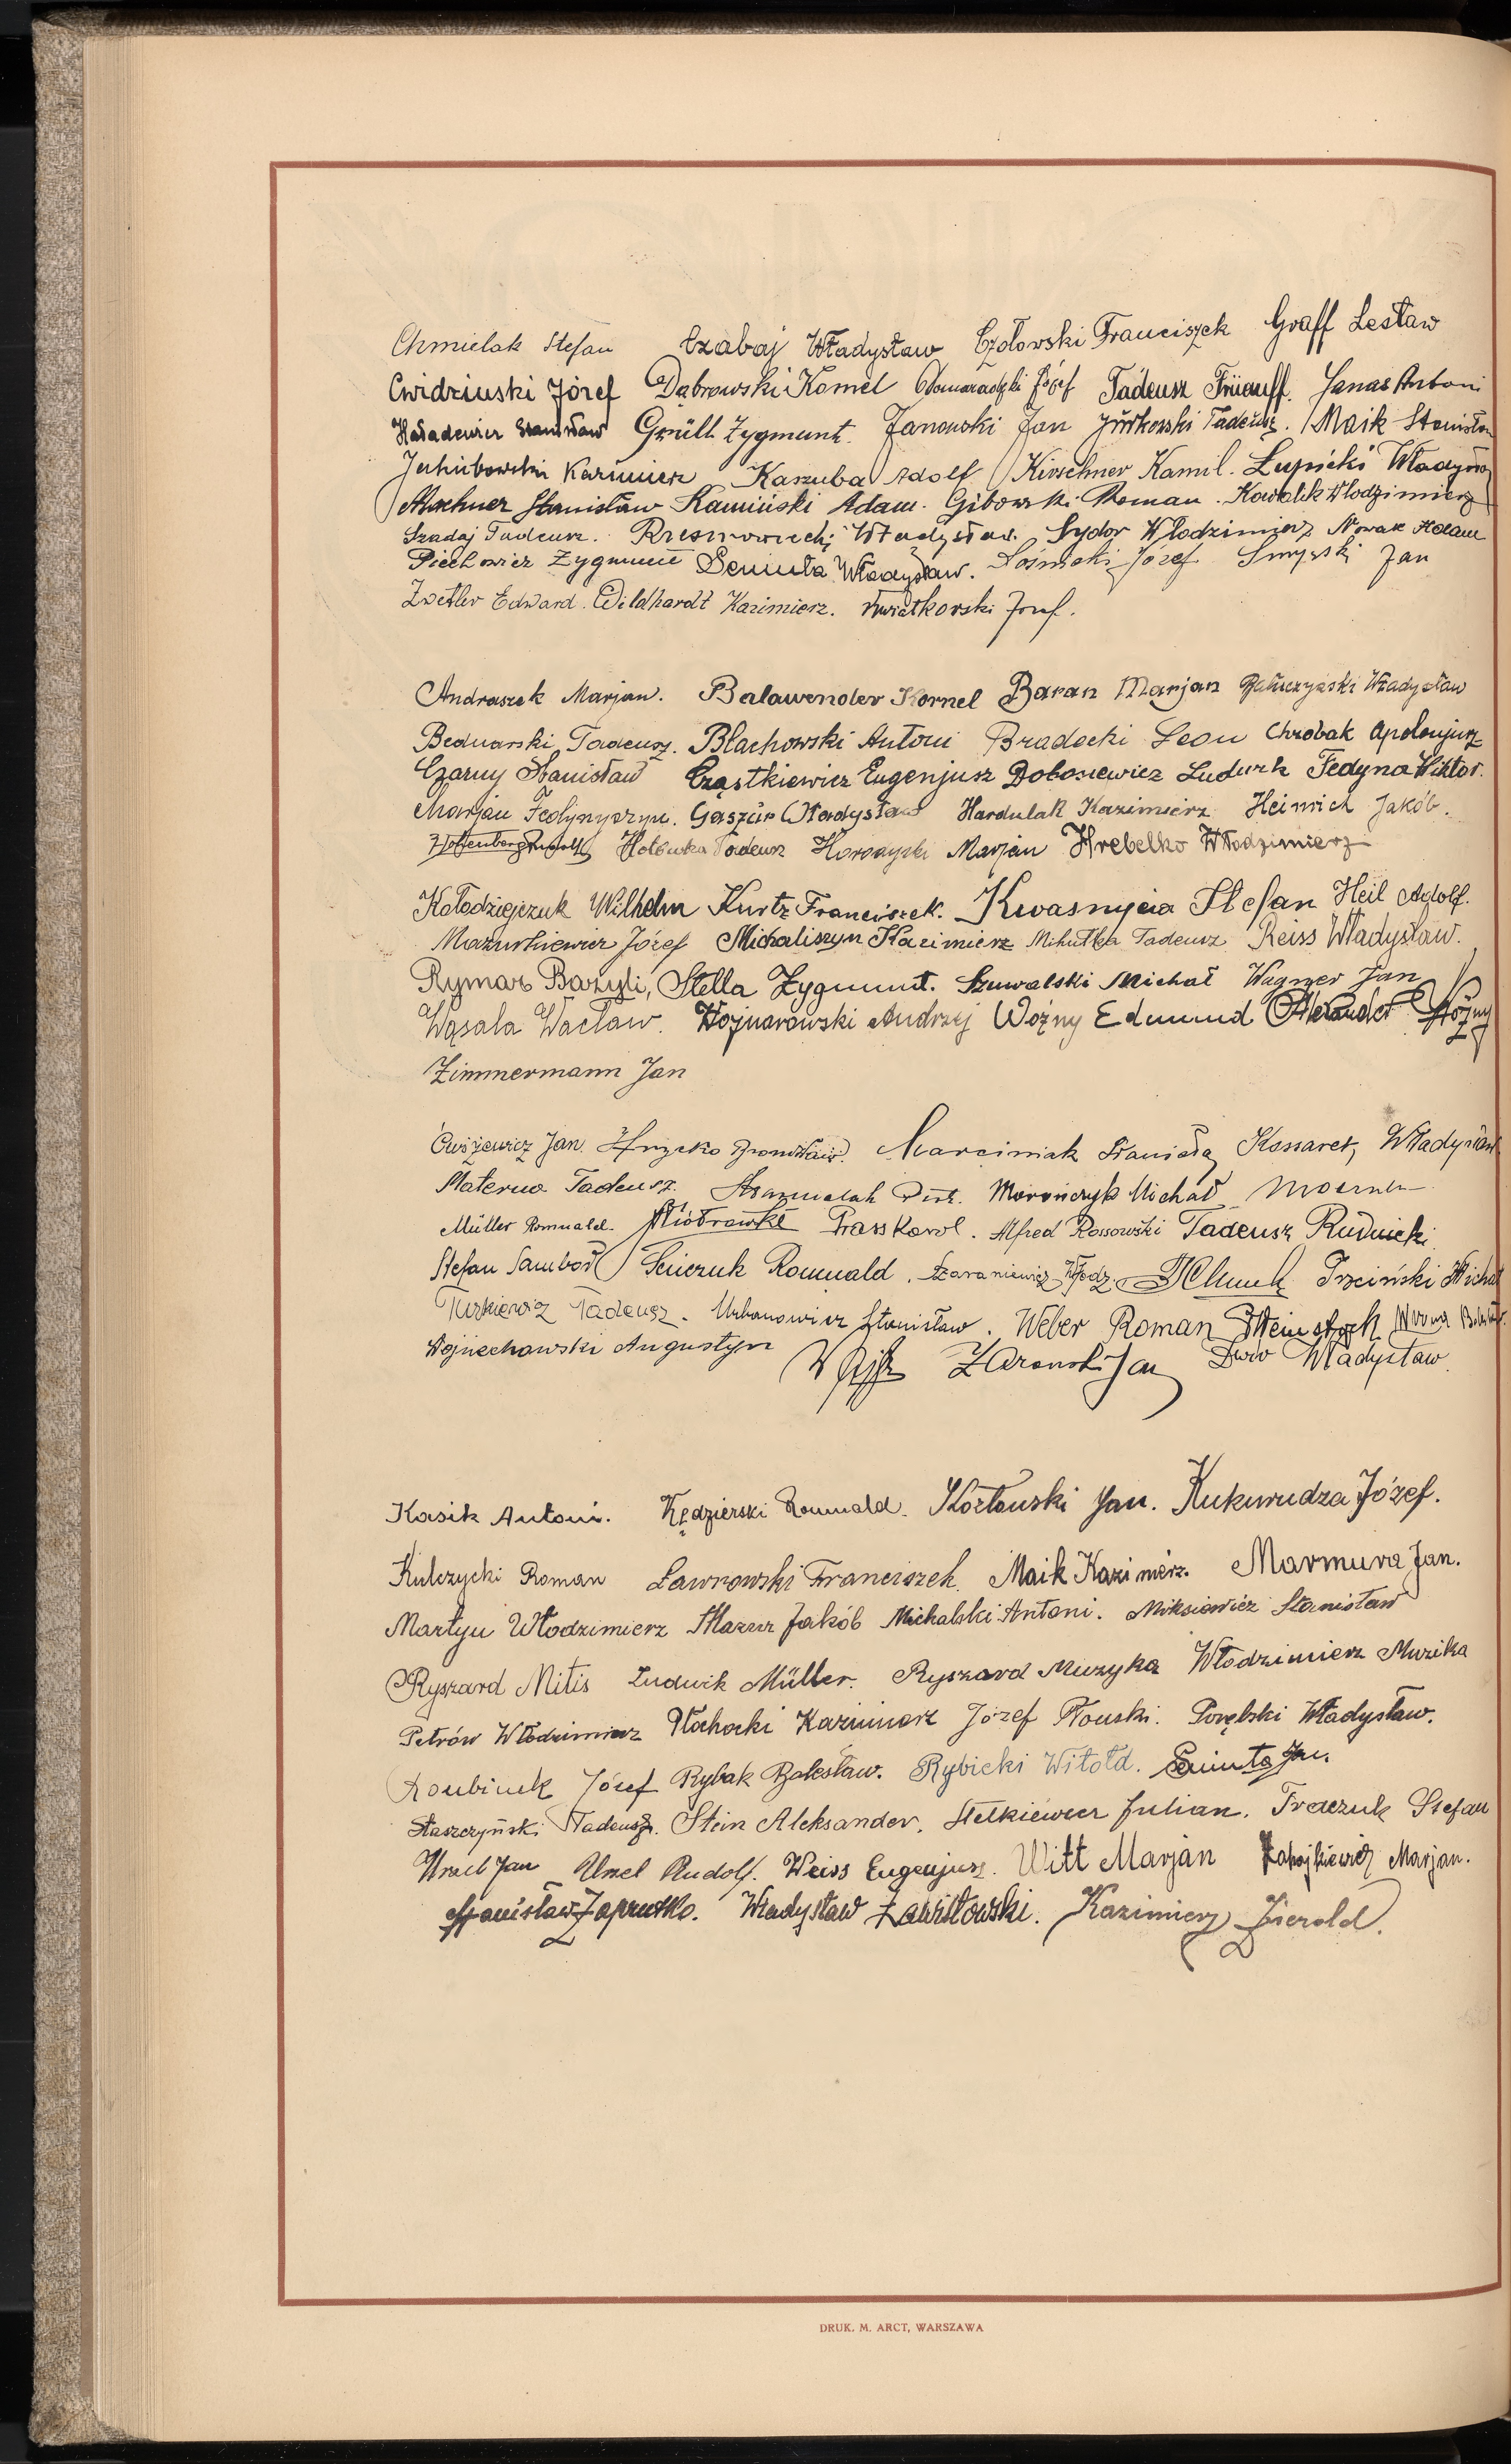 Chmielak Stefan Czabaj Władysław Czołowski Franciszek Graff Lesław
Ćwidziński Józef Dąbrowski Kornel Domaradzki Józef Tadeusz Früauff. Janas Antoni
Haładewicz Stanisław Grüll Zygmunt. Janowski Jan Jurkowski Tadeusz. Maik Stanisław
Jakubowski Kazimierz Kaszuba Adolf Kirschner Kamil. Łupicki Władysław
Stanisław Kamiński Adam. Gibowski Roman. Kowalik Włodzimierz
Szadaj Tadeusz. Władysław. Sydor Włodzimierz Nowak Adam
Piechowicz Zygmunt Seniuta Władysław. Józef Smyrski Jan
Zwetler Edward. Wildhardt Kazimierz. Kwiatkowski Józef.
Andraszek Marjan. Balawender Kornel Baran Marjan Władysław
Bednarski Tadeusz. Błachowski Antoni Bradecki Leon Chrobak Apolonjusz
Czarny Stanisław Cząstkiewicz Eugenjusz Dobosiewicz Ludwik Fedyna Wiktor.
Marjan Fedynyszyn. Gaszur Władysław Hardulak Kazimierz Heinrich Jakób.
Hoffenberg Rudolf Hołówka Tadeusz Horodyski Marjan Hrebelko Włodzimierz
Kołodziejczuk Wilhelm Kurtz Franciszek. Kwasnycia Stefan Heil Adolf.
Mazurkiewicz Józef Michaliszyn Kazimierz Mihułka Tadeusz Reiss Władysław.
Rymar Bazyli, Stella Zygmunt. Szuwalski Michał Wagner Jan
Wąsala Wacław. Wojnarowski Andrzej Woźny Edmund Aleksander Woźny
Zimmermann Jan
Jan Hrycko Bronisław. Marciniak Stanisław Kossarek, Władysław
Materna Tadeusz. Piotr. Morończyk Michał
Müller Romuald. Piotrowski Prass Karol. Alfred Rossowski Tadeusz Rudnicki
Stefan Sambor Senczuk Romuald. Szaraniewicz Włodz. Trzciński Michał
Turkiewicz Tadeusz. Urbanowicz Stanisław. Weber Roman Weinstock Wrona
Wojciechowski Augustyn Jan Władysław.
Kasik Antoni. Kędzierski Romuald. Kozłowski Jan. Kukurudza Józef.
Kulczycki Roman Ławrowski Franciszek. Maik Kazimierz. Marmura Jan.
Martyn Włodzimierz Mazur Jakób Michalski Antoni. Miksiewicz Stanisław
Ryszard Mitis Ludwik Müller. Ryszard Muzyka Włodzimierz Muzika
Petrów Włodzimierz Płochocki Kazimierz Józef Płouski. Porębski Władysław.
Roubinek Józef Rybak Bolesław. Rybicki Witold. Seniuta Jan.
Staszczyński Tadeusz. Stein Aleksander. Stetkiewicz Julian. Traczuk Stefan
Urzel Jan Urzel Rudolf. Weiss Eugenjusz. Witt Marjan Marjan.
Stanisław Zaprutko. Władysław Zawistowski. Kazimierz Zierold.
DRUK. M. ARCT, WARSZAWA